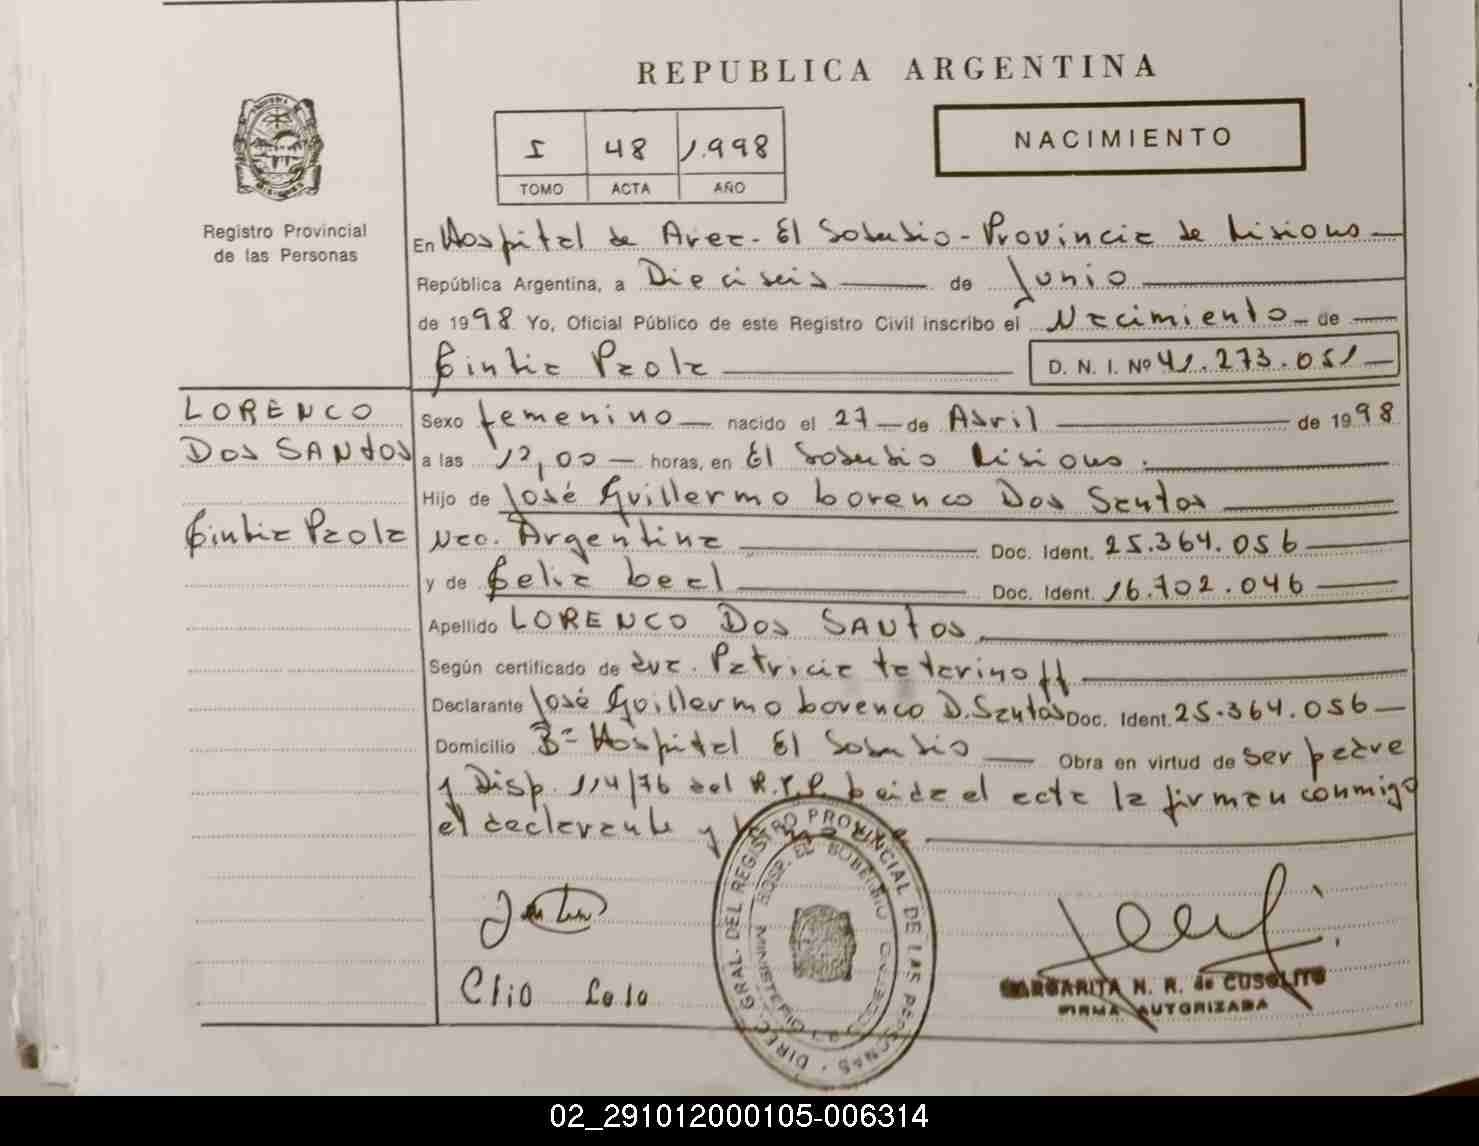 REPUBLICA ARGENTINA
I 48 1.998
TOMO ACTA AÑO
NACIMIENTO
Registro Provincial
de las Personas
En Hospital de Area - El Soberbio - Provincia de Misiones
República Argentina, a Dieciseis de Junio
de 1998 Yo, Oficial Público de este Registro Civil inscribo el Nacimiento de
Cintia Paola
D. N. I. Nº 41.273.051
LORENCO
DOS SANtOS
Cintia Paola
Sexo femenino nacido el 27 de Abril de 1998
a las 12,00 horas, en El Soberbio Misiones.
Hijo de José Guillermo Lorenco Dos Santos
Nac. Argentina Doc. Ident. 25.364.056
y de Celia Leal Doc. Ident. 16.702.046
Apellido LORENCO DOS SANtOS
Según certificado de Patricia
Declarante José Guillermo Lorenco D. Santos Doc. Ident. 25.364.056
Domicilio Bº Hospital El Soberbio Obra en virtud de ser padre
y Disp. 114/76 del R.P.P. Leida el acta la firman conmigo
el declarante y
DIREC. GRAL. DEL REGISTRO PROVINCIAL DE LAS PERSONAS
HOSP. EL SOBERBIO
MINISTERIO DE GOBIERNO
MARGARITA N. R. de CUSOLITO
FIRMA AUTORIZADA
02_291012000105-006314